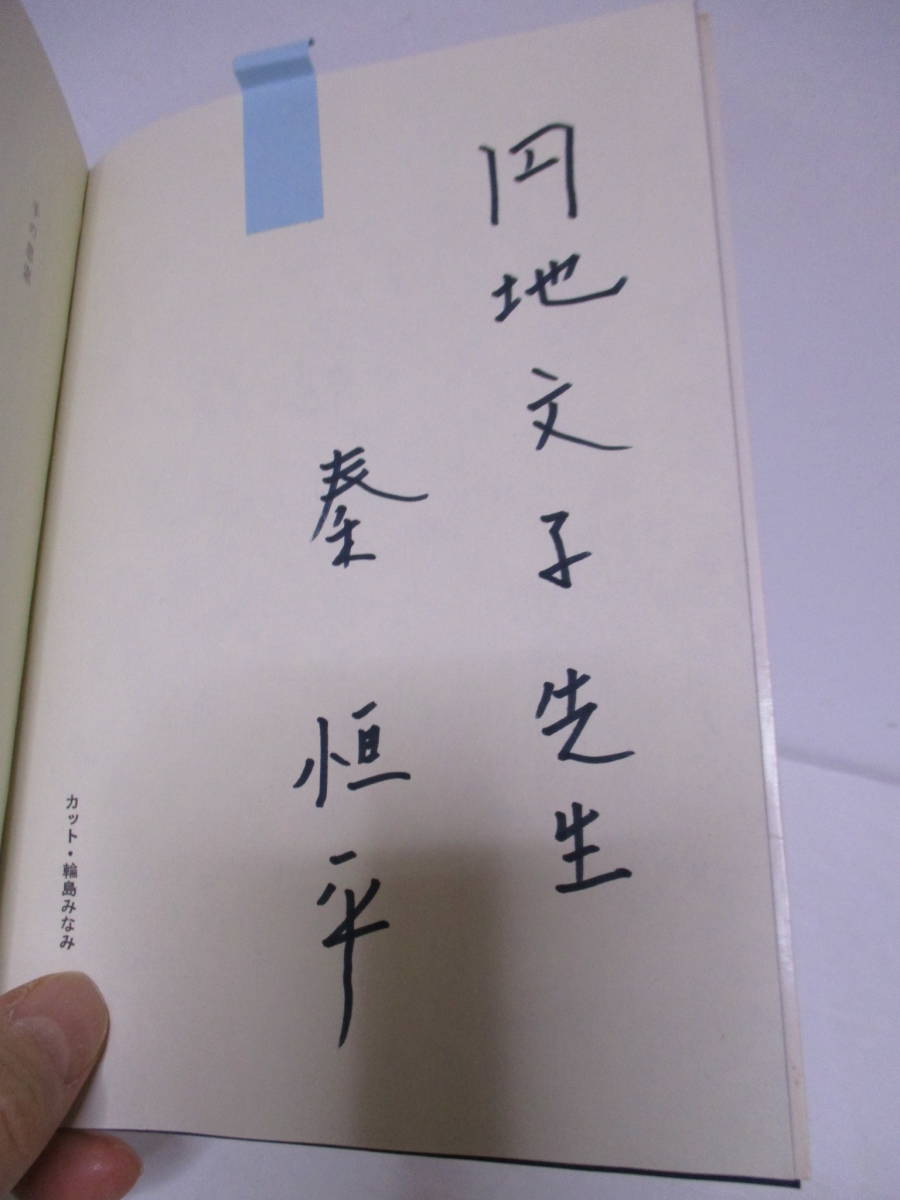 円地文子先生
秦 恒平
カット・輪島みなみ